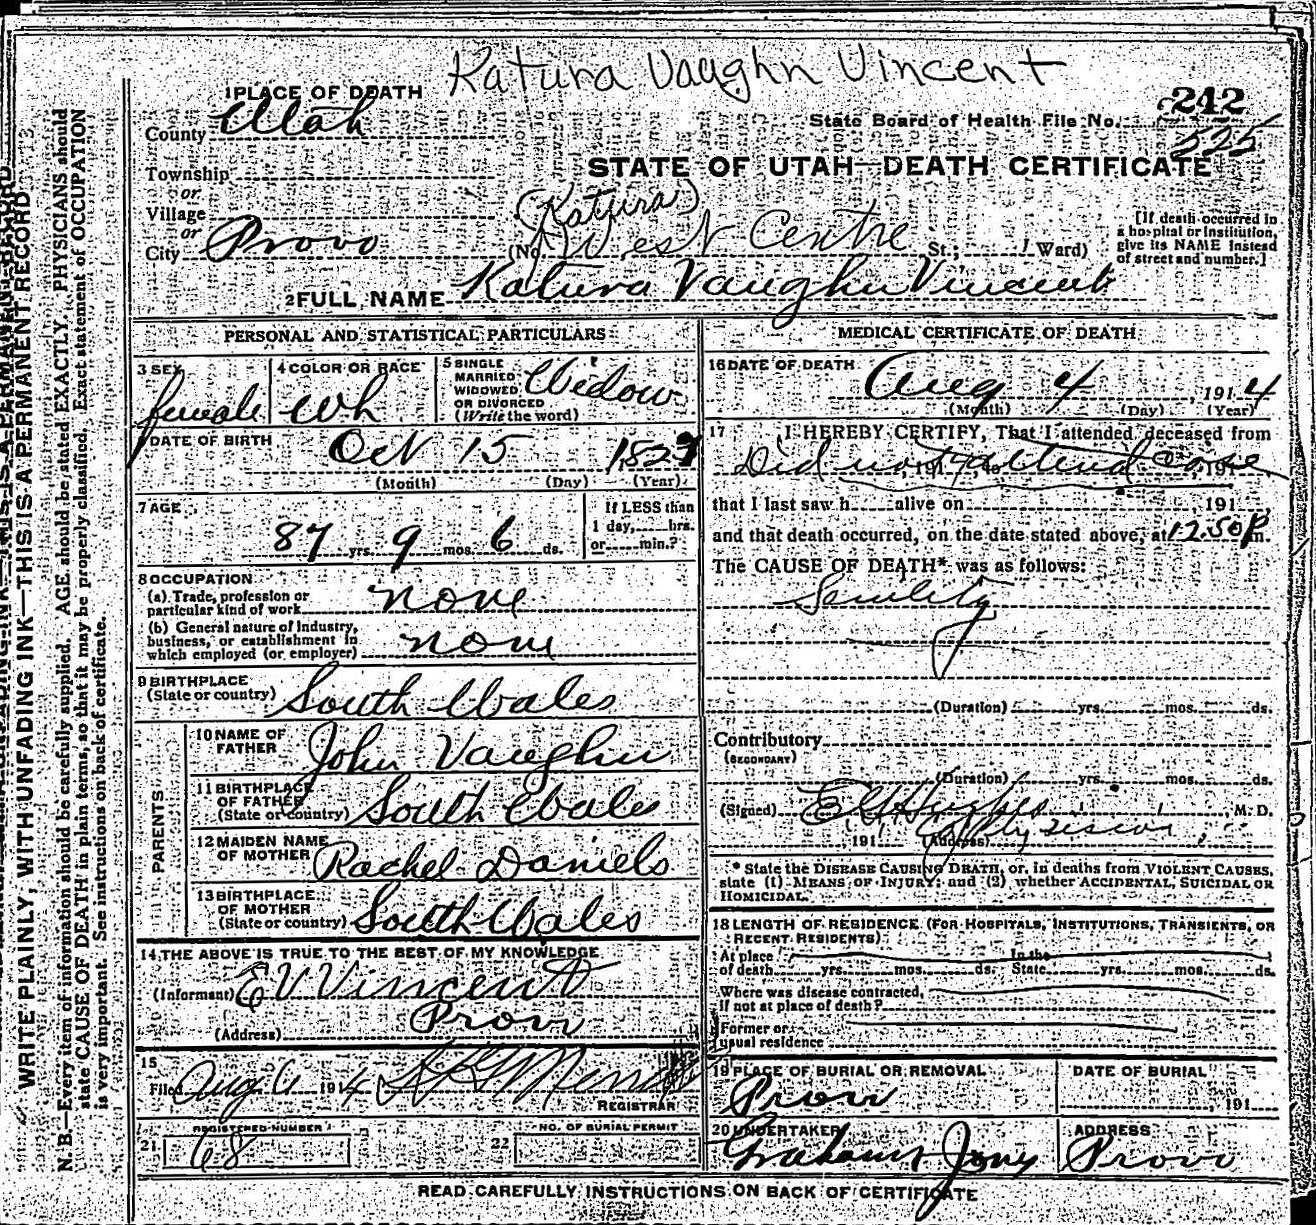 Katura Vaughn Vincent
1 PLACE OF DEATH
County Utah
242
State Board of Health File No.
525
Township
or
STATE OF UTAH—DEATH CERTIFICATE
Village
or
(Katura)
City Provo
(No. West Centre St.; Ward)
[If death occurred in
a hospital or institution,
give its NAME instead
of street and number.]
2 FULL NAME Katura Vaughn Vincent
PERSONAL AND STATISTICAL PARTICULARS
3 SEX female
4 COLOR OR RACE Wh
5 SINGLE
MARRIED
WIDOWED
OR DIVORCED
(Write the word)
Widow
DATE OF BIRTH
Oct 15
(Month) (Day) (Year)
7 AGE
87 yrs. 9 mos. 6 ds.
If LESS than
1 day, hrs.
or min.?
8 OCCUPATION
(a) Trade, profession or
particular kind of work none
(b) General nature of industry,
business, or establishment in
which employed (or employer) none
9 BIRTHPLACE
(State or country) South Wales
PARENTS
10 NAME OF
FATHER John Vaughn
11 BIRTHPLACE
OF FATHER
(State or country) South Wales
12 MAIDEN NAME
OF MOTHER Rachel Daniels
13 BIRTHPLACE
OF MOTHER
(State or country) South Wales
14 THE ABOVE IS TRUE TO THE BEST OF MY KNOWLEDGE
(Informant) E V Vincent
(Address) Provo
15
Filed Aug 6 1914
REGISTRAR
REGISTERED NUMBER
21 68
NO. OF BURIAL PERMIT
22
MEDICAL CERTIFICATE OF DEATH
16 DATE OF DEATH
Aug 4, 1914
(Month) (Day) (Year)
17 I HEREBY CERTIFY, That I attended deceased from
Did not attend case
that I last saw h alive on 191
and that death occurred, on the date stated above, at 12.50 P m.
The CAUSE OF DEATH* was as follows:
Senility
(Duration) yrs. mos. ds.
Contributory
(SECONDARY)
(Duration) yrs. mos. ds.
(Signed) Hughes, M.D.
191 (Address)
* State the DISEASE CAUSING DEATH, or, in deaths from VIOLENT CAUSES,
state (1) MEANS OF INJURY; and (2) whether ACCIDENTAL, SUICIDAL OR
HOMICIDAL.
18 LENGTH OF RESIDENCE (FOR HOSPITALS, INSTITUTIONS, TRANSIENTS, OR
RECENT RESIDENTS)
At place In the
of death yrs. mos. ds. State yrs. mos. ds.
Where was disease contracted,
if not at place of death?
Former or
usual residence
19 PLACE OF BURIAL OR REMOVAL
Provo
DATE OF BURIAL
, 191
20 UNDERTAKER
ADDRESS
Provo
READ CAREFULLY INSTRUCTIONS ON BACK OF CERTIFICATE
WRITE PLAINLY, WITH UNFADING INK—THIS IS A PERMANENT RECORD
N. B.—Every item of information should be carefully supplied. AGE should be stated EXACTLY. PHYSICIANS should
state CAUSE OF DEATH in plain terms, so that it may be properly classified. Exact statement of OCCUPATION
is very important. See instructions on back of certificate.